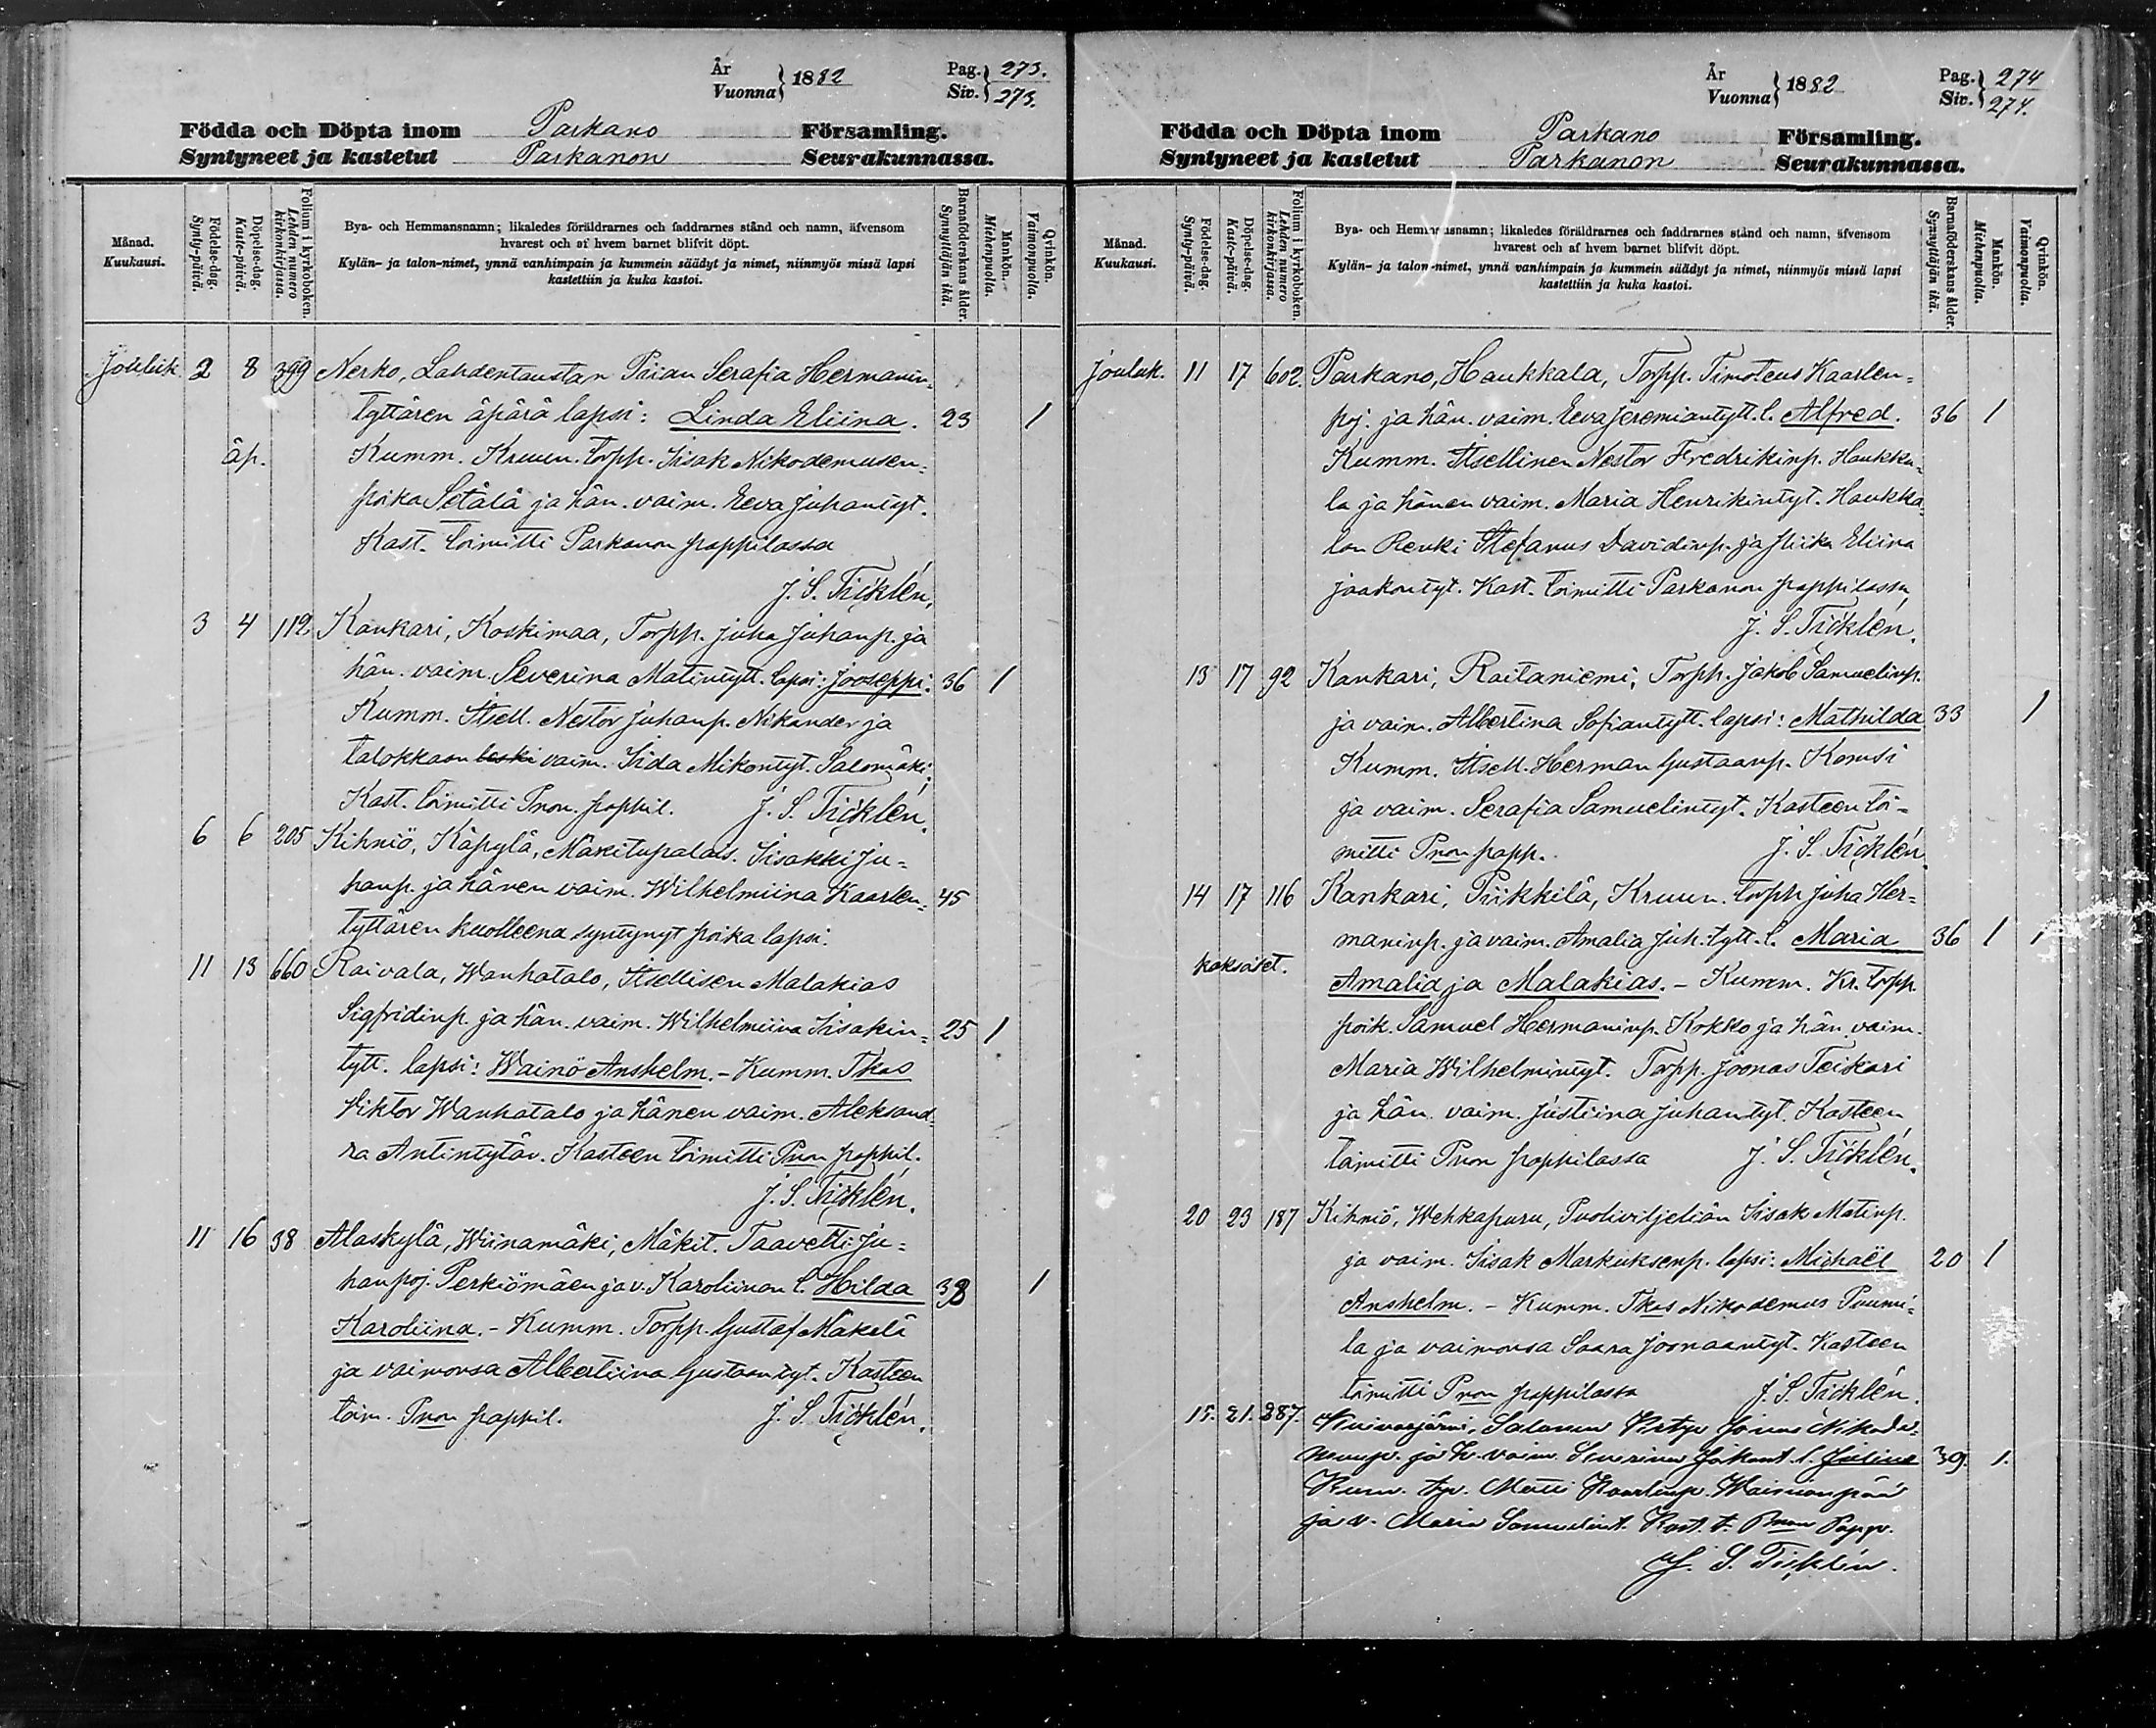 År
Vuonna } 1882
Pag. } 273.
Siv. } 273.
Födda och Döpta inom Parkano Församling.
Syntyneet ja kastetut Parkanon Seurakunnassa.
Månad.
Kuukausi.
Födelse-dag.
Synty-päivä.
Döpelse-dag.
Kaste-päivä.
Folium i kyrkoboken.
Lehden numero kirkonkirjassa.
Bya- och Hemmansnamn; likaledes föräldrarnes och faddrarnes stånd och namn, äfvensom
hvarest och af hvem barnet blifvit döpt.
Kylän- ja talon-nimet, ynnä vanhimpain ja kummein säädyt ja nimet, niinmyös missä lapsi
kastettiin ja kuka kastoi.
Barnaföderskans ålder.
Synnyttäjän ikä.
Mankön.
Miehenpuolia.
Qvinkön.
Vaimonpuolia.
Jouluk. 2 8 399 Nerko, Lahdentaustan Piian Serafia Hermanin-
tyttären äpärä lapsi: Linda Eliina. 23 1
äp. Kumm. Kruun. torpp. Iisak Nikodemusen-
poika Setälä ja hän. vaim. Eeva Juhantyt.
Kast. toimitti Parkanon pappilassa
J. S. Ticklén.
3 4 112. Kankari, Koskimaa, Torpp. Juha Juhanp. ja
hän. vaim. Severina Matintytt. lapsi: Jooseppi. 36 1
Kumm. Itsell. Nestor Juhanp. Nikander ja
talokkaan leski vaim. Iida Mikontyt. Salomäki.
Kast. toimitti Pnon. pappil. J. S. Ticklén.
6 6 205 Kihniö, Käpylä, Mäkitupalais. Iisakki Ju-
hanp. ja hänen vaim. Wilhelmiina Kaarlen- 45
tyttären kuolleena syntynyt poika lapsi.
11 13 660 Raivala, Wanhatalo, Itsellisen Malakias
Sigfridinp. ja hän. vaim. Wilhelmiina Iisakin- 25 1
tytt. lapsi: Wäinö Anshelm. - Kumm. Tkas
Viktor Wanhatalo ja hänen vaim. Aleksand-
ra Antintytär. Kasteen toimitti Pnon pappil.
J. S. Ticklén.
11 16 38 Alaskylä, Wiinamäki, Mäkit. Taavetti Ju-
hanpoj. Perkiömäen ja v. Karoliinan l. Hilda 38 1
Karoliina. - Kumm. Torpp. Gustaf Mäkelä
ja vaimonsa Albertiina Gustaantyt. Kasteen
toim. Pnon pappil. J. S. Ticklén.
År
Vuonna } 1882
Pag. } 274
Siv. } 274.
Födda och Döpta inom Parkano Församling.
Syntyneet ja kastetut Parkanon Seurakunnassa.
Månad.
Kuukausi.
Födelse-dag.
Synty-päivä.
Döpelse-dag.
Kaste-päivä.
Folium i kyrkoboken.
Lehden numero kirkonkirjassa.
Bya- och Hemmansnamn; likaledes föräldrarnes och faddrarnes stånd och namn, äfvensom
hvarest och af hvem barnet blifvit döpt.
Kylän- ja talon-nimet, ynnä vanhimpain ja kummein säädyt ja nimet, niinmyös missä lapsi
kastettiin ja kuka kastoi.
Barnaföderskans ålder.
Synnyttäjän ikä.
Mankön.
Miehenpuolia.
Qvinkön.
Vaimonpuolia.
Jouluk. 11 17 602. Parkano, Haukkala, Torpp. Timoteus Kaarlen-
poj. ja hän. vaim. Eeva Jeremiantytt. l. Alfred. 36 1
Kumm. Itsellinen Nestor Fredrikinp. Haukka-
la ja hänen vaim. Maria Henrikintyt. Haukka-
lan Renki Stefanus Davidinp. ja Piika Eliina
Jaakontyt. Kast. toimitti Parkanon pappilassa
J. S. Ticklén.
13 17 92 Kankari, Raitaniemi, Torpp. Jakob Samuelinp.
ja vaim. Albertina Sofiantytt. lapsi: Mathilda 33 1
Kumm. Itsell. Herman Gustaanp. Komsi
ja vaim. Serafia Samuelintyt. Kasteen toi-
mitti Pnon papp. J. S. Ticklén
14 17 116 Kankari, Piikkilä, Kruun. torpp. Juha Her-
maninp. ja vaim. Amalia Juh. tytt. l. Maria 36 1 1
kaksoiset. Amalia ja Malakias. - Kumm. Kr. torpp.
poik. Samuel Hermaninp. Kokko ja hän. vaim.
Maria Wilhelmintyt. Torpp. Joonas Teiskari
ja hän. vaim. Justiina Juhantyt. Kasteen
toimitti Pnon pappilassa J. S. Ticklén.
20 23 187 Kihniö, Wehkapuru, Puoliviljeliän Iisak Matinp.
ja vaim. Iisak Markuksenp. lapsi: Michaël 20 1
Anshelm. - Kumm. Tkas Nikodemus Puumi-
la ja vaimonsa Saara Joonaantyt. Kasteen
toimitti Pnon pappilassa J. S. Ticklén.
15. 21. 287. Kuivasjärvi, Salonen Joonas Nikode-
musp. ja h. vaim. Severina Jakont. l. 39. 1.
Kum. Matti Kaarlenp.
ja v. Maria Samuelint. Kast. t. Pnon Papp.
J. S. Ticklén.